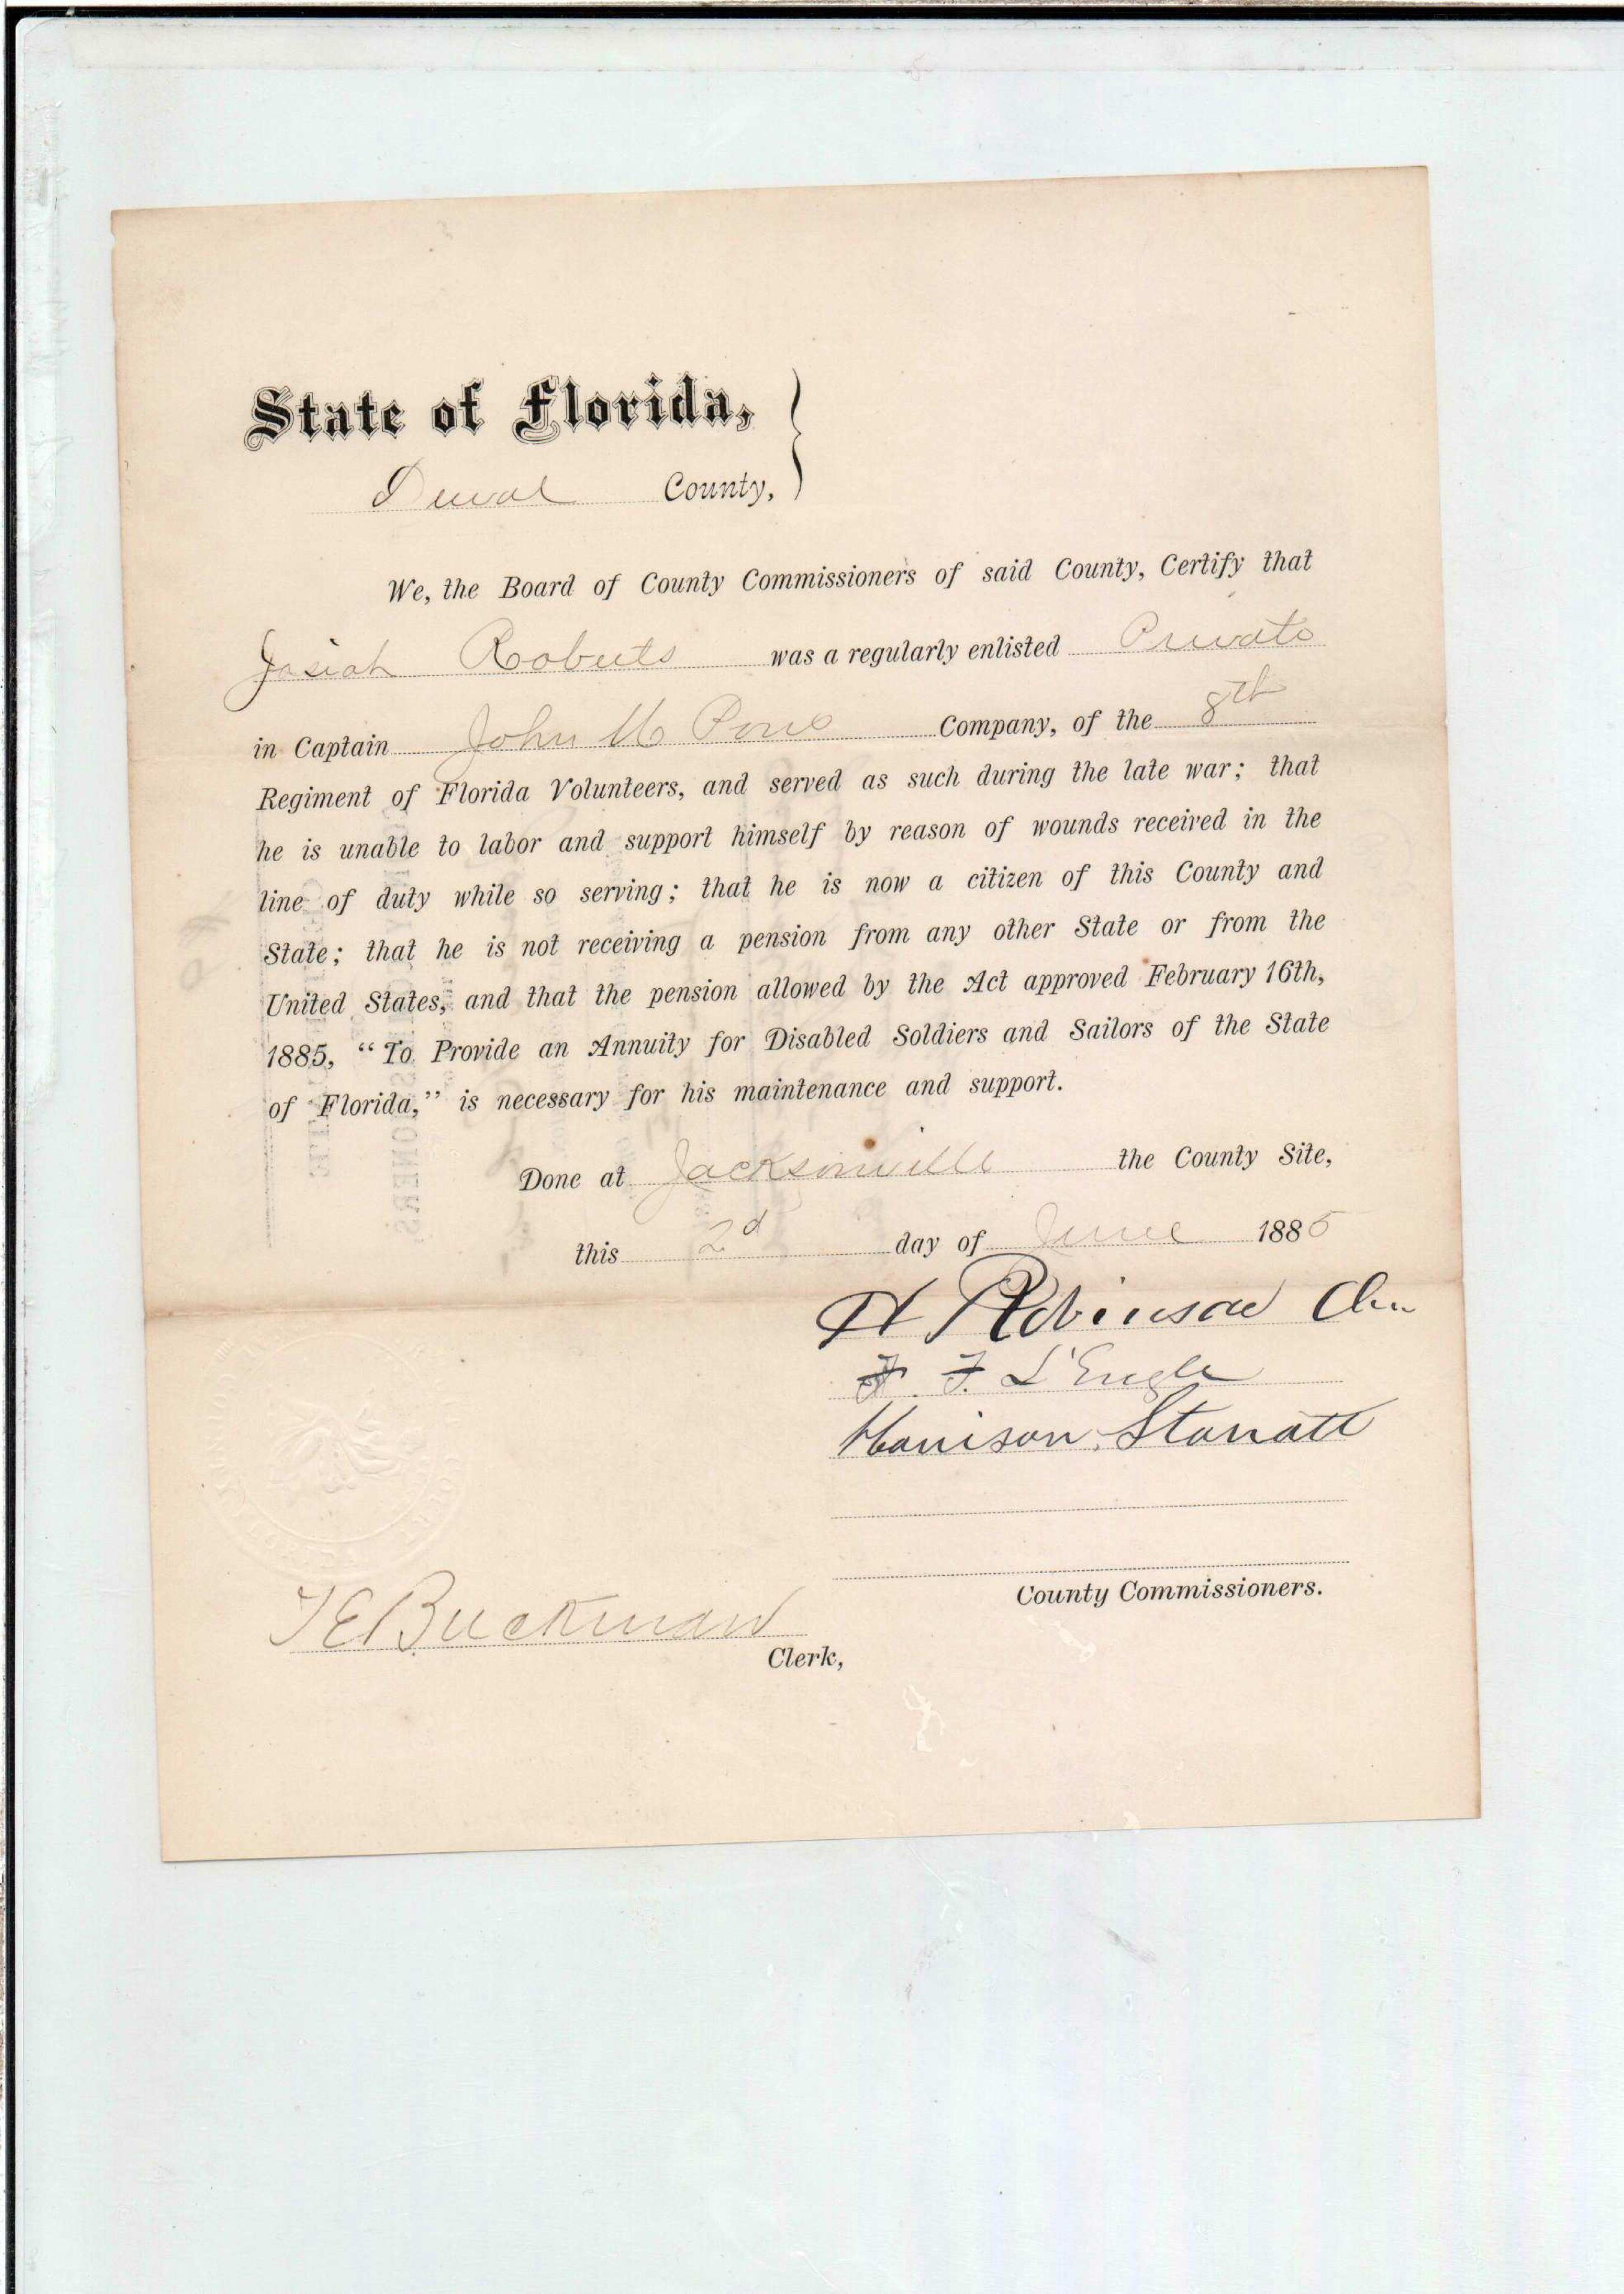 State of Florida,
Duval County,
We, the Board of County Commissioners of said County, Certify that
Josiah Roberts was a regularly enlisted Private
in Captain John M Pons Company, of the 8th
Regiment of Florida Volunteers, and served as such during the late war; that
he is unable to labor and support himself by reason of wounds received in the
line of duty while so serving; that he is now a citizen of this County and
State; that he is not receiving a pension from any other State or from the
United States, and that the pension allowed by the Act approved February 16th,
1885, “To Provide an Annuity for Disabled Soldiers and Sailors of the State
of Florida,” is necessary for his maintenance and support.
Done at Jacksonville the County Site,
this 2d day of June 1885
H Robinson Chn
F. F. L'Engle
Harrison Starratt
County Commissioners.
T E Buckman
Clerk,